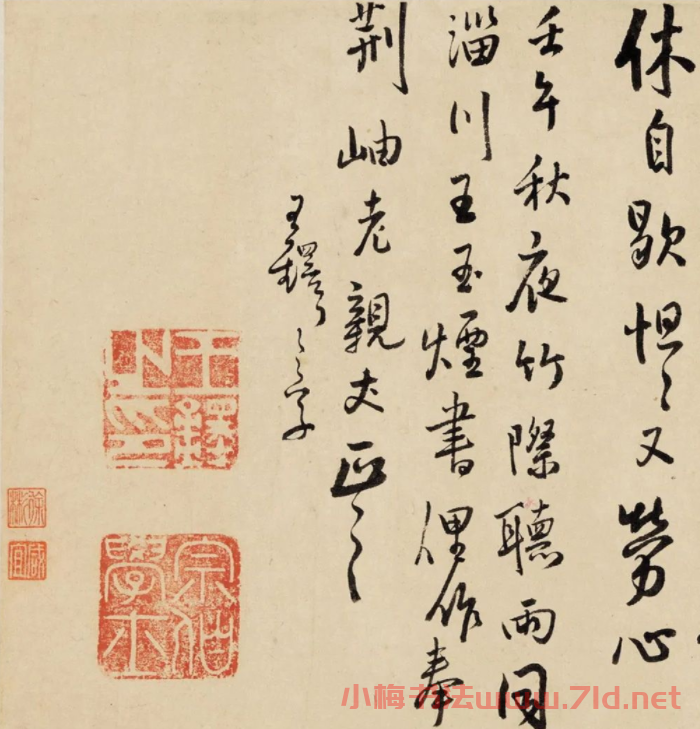 休自歇怛〻又勞心
壬午秋夜竹際聽雨同
淄川王玉煙書俚作奉
荊岫老親丈正之
王鐸
王鐸之印
宗伯學士
小梅书法www.7ld.net